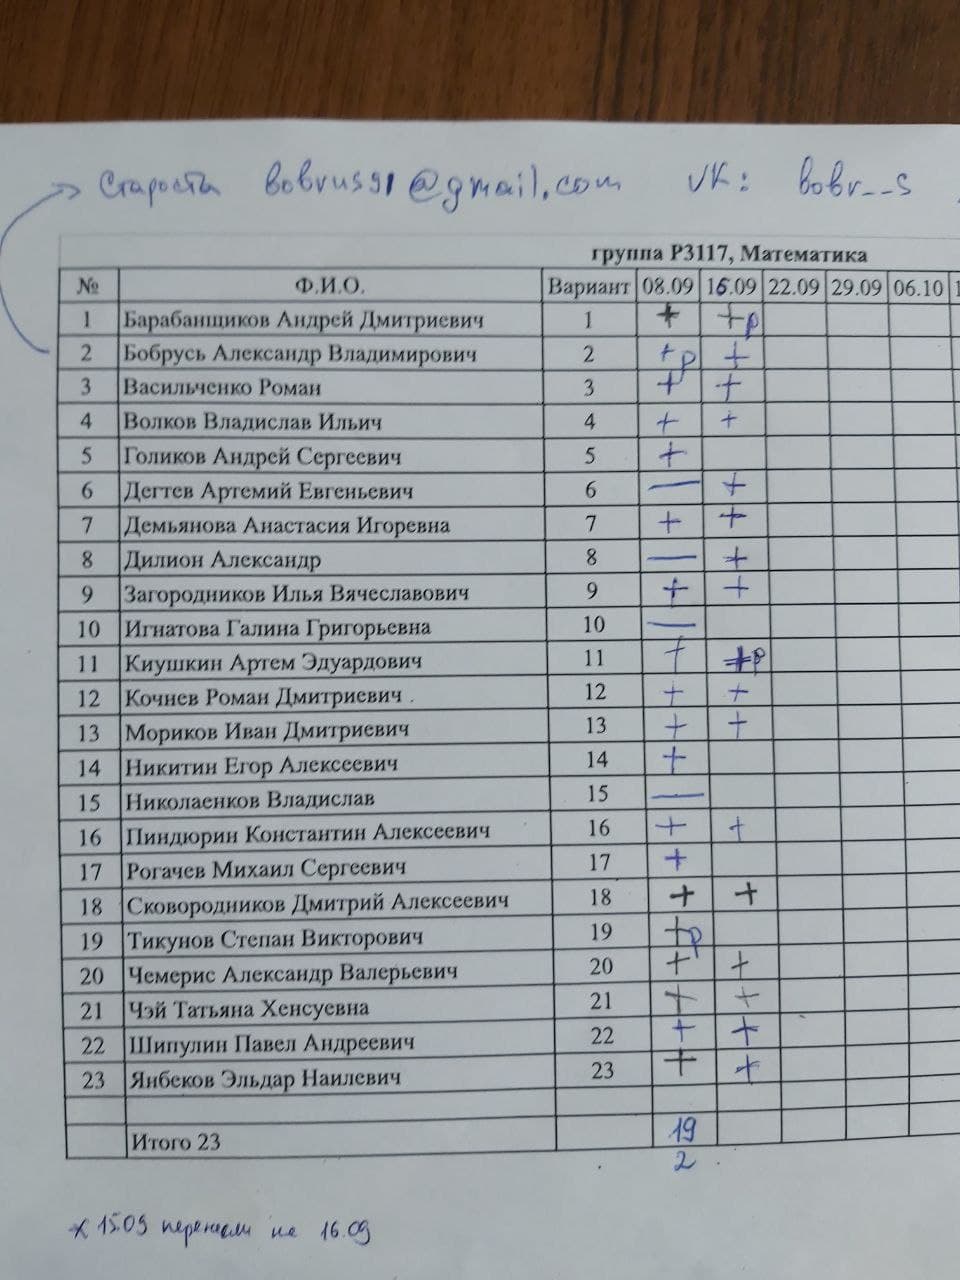 Староста bobrus91@gmail.com VK: bobr__s
группа P3117, Математика
№ Ф.И.О. Вариант 08.09 16.09 22.09 29.09 06.10 1
1 Барабанщиков Андрей Дмитриевич 1 + +р
2 Бобрусь Александр Владимирович 2 +р +
3 Васильченко Роман 3 + +
4 Волков Владислав Ильич 4 + +
5 Голиков Андрей Сергеевич 5 +
6 Дегтев Артемий Евгеньевич 6 — +
7 Демьянова Анастасия Игоревна 7 + +
8 Дилион Александр 8 — +
9 Загородников Илья Вячеславович 9 + +
10 Игнатова Галина Григорьевна 10 —
11 Киушкин Артем Эдуардович 11 + +р
12 Кочнев Роман Дмитриевич . 12 + +
13 Мориков Иван Дмитриевич 13 + +
14 Никитин Егор Алексеевич 14 +
15 Николаенков Владислав 15 —
16 Пиндюрин Константин Алексеевич 16 + +
17 Рогачев Михаил Сергеевич 17 +
18 Сковородников Дмитрий Алексеевич 18 + +
19 Тикунов Степан Викторович 19 +р
20 Чемерис Александр Валерьевич 20 + +
21 Чэй Татьяна Хенсуевна 21 + +
22 Шипулин Павел Андреевич 22 + +
23 Янбеков Эльдар Наилевич 23 + +
Итого 23 19
2
* 15.09 на 16.09